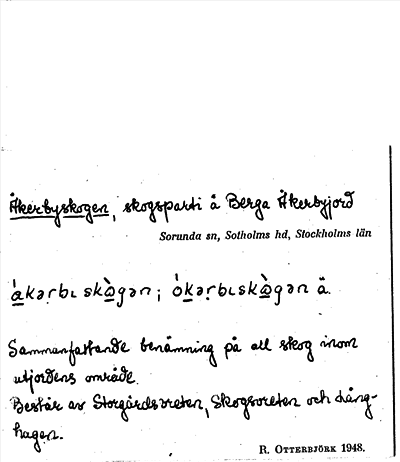 Åkerbyskogen, skogsparti å Berga Åkerbyjord
Sorunda sn, Sotholms hd, Stockholms län
åkərbɩ skò̱gən; ókərbɩskò̱gən ä.
Sammanfattande benämning på all skog inom
utjordens område.
Består av Storgårdsoreten, Skogsoreten och Lång-
hagen.
R. OTTERBJÖRK 1948.